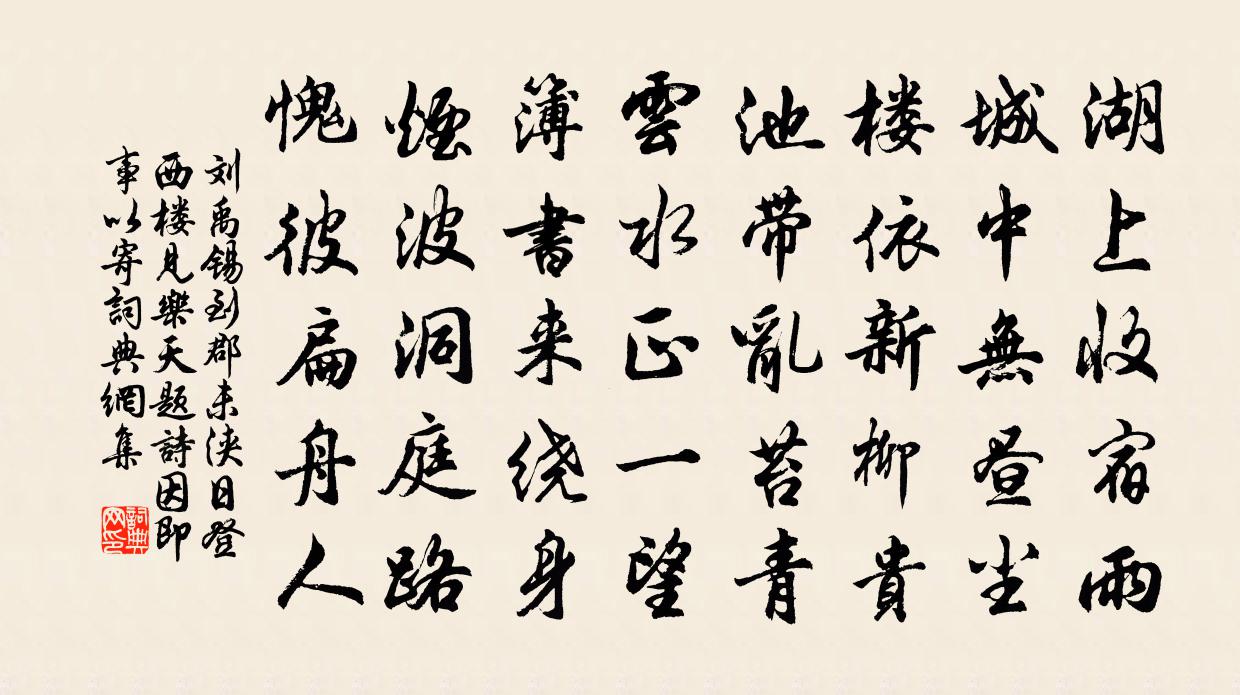 湖上收宿雨
城中無昼尘
楼依新柳貴
池带亂苔青
雲水正一望
簿書来绕身
煙波洞庭路
愧彼扁舟人
刘禹锡到郡未浃日登
西楼見樂天题詩因即
事以寄詞典網集
詞典
网印